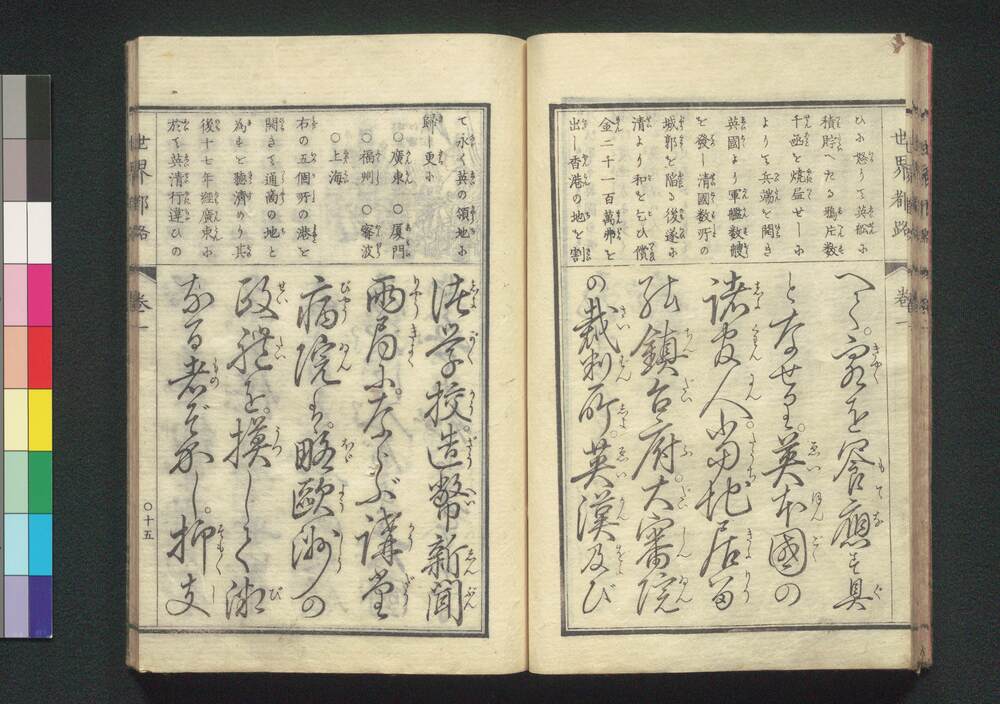 世界都路
巻一
ひに怒りて英舩に
積貯へたる鴉片数
千凾を焼盡せしに
よりて兵端を開き
英國より軍艦数艘
を發し清國数所の
城郭を陥る後遂に
清より和を乞ひ償
金二千一百萬弗を
出し香港の地を割
客を饗應す具
となせり。英本國の
諸官人。
鎮台府。大審院
の裁判所。英漢及び
て永く英の領地に
歸し更に
○廣東 ○厦門
○福州 ○寧波
○上海
右の五個所の港を
開きて通商の地と
為すを聽濟めり其
後十七年經廣東に
於て英清行違ひの
学校。造幣新聞
両局に。ならぶ講堂
病院も。略歐洲の
政體を。摸して
なる者ぞ。抑支
世界都路
巻一
○十五